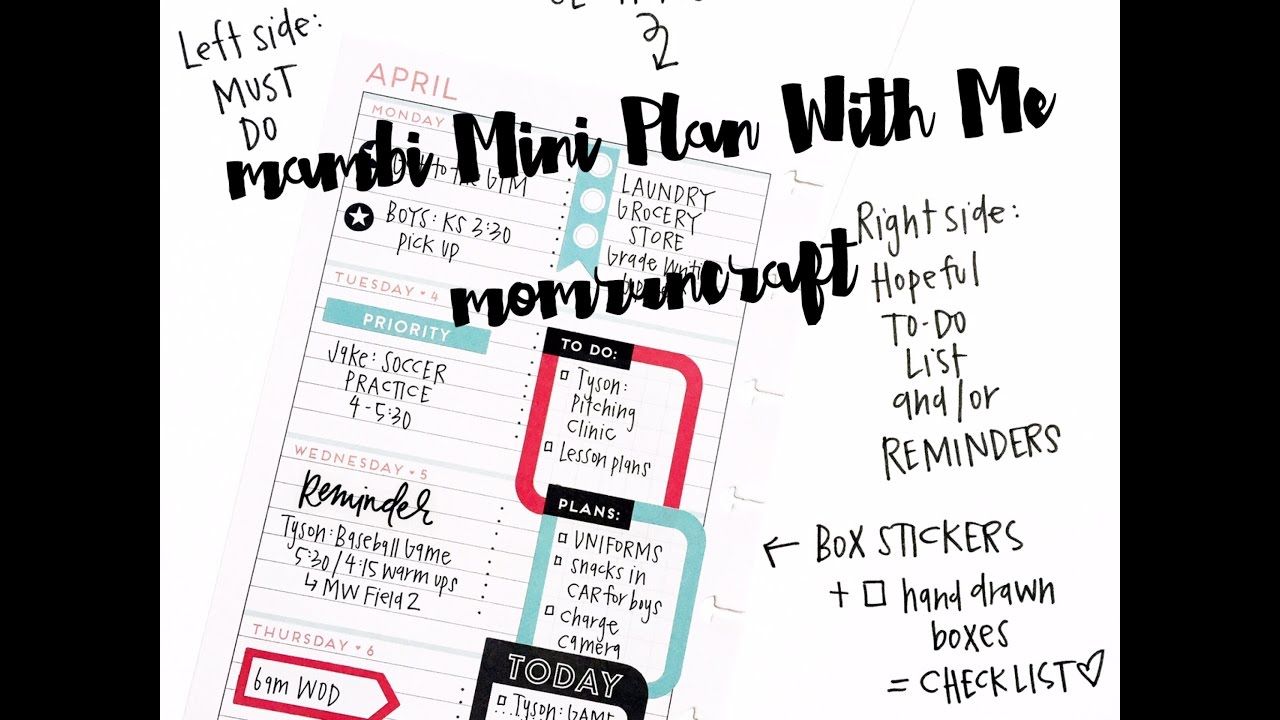 Left side:
MUST
DO
mambi Mini Plan With Me
momruncraft
APRIL
MONDAY
to the GYM
BOYS: KS 3:30
pick up
LAUNDRY
GROCERY
STORE
Grade
TUESDAY ♥ 4
PRIORITY
Jake: SOCCER
PRACTICE
4-5:30
TO DO:
Tyson:
Pitching
Clinic
Lesson plans
WEDNESDAY ♥ 5
Reminder
Tyson: Baseball Game
5:30/4:15 warm ups
↳ MW Field 2
PLANS:
UNIFORMS
snacks in
CAR for boys
charge
camera
THURSDAY ♥ 6
6am WOD
TODAY
Tyson: GAME
Right side:
Hopeful
TO-DO
LIST
and/or
REMINDERS
← BOX STICKERS
+ □ hand drawn
boxes
= CHECKLIST♡